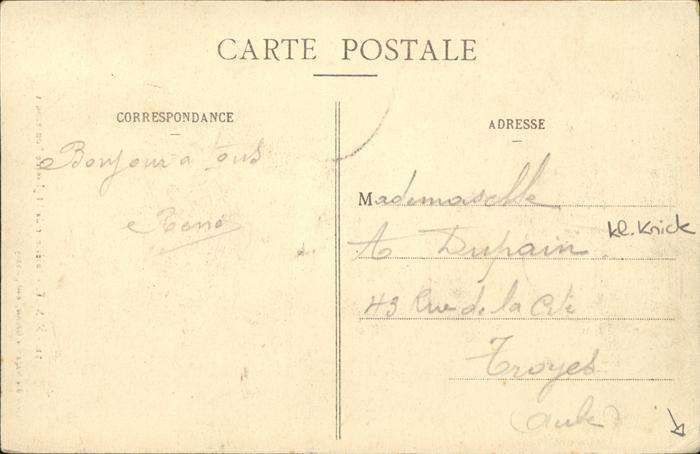 CARTE POSTALE
CORRESPONDANCE
ADRESSE
Bonjour a tous
René
Mademoiselle
A Dupain.
kl. Knick
43 Rue de la Cité
Troyes
(Aube)